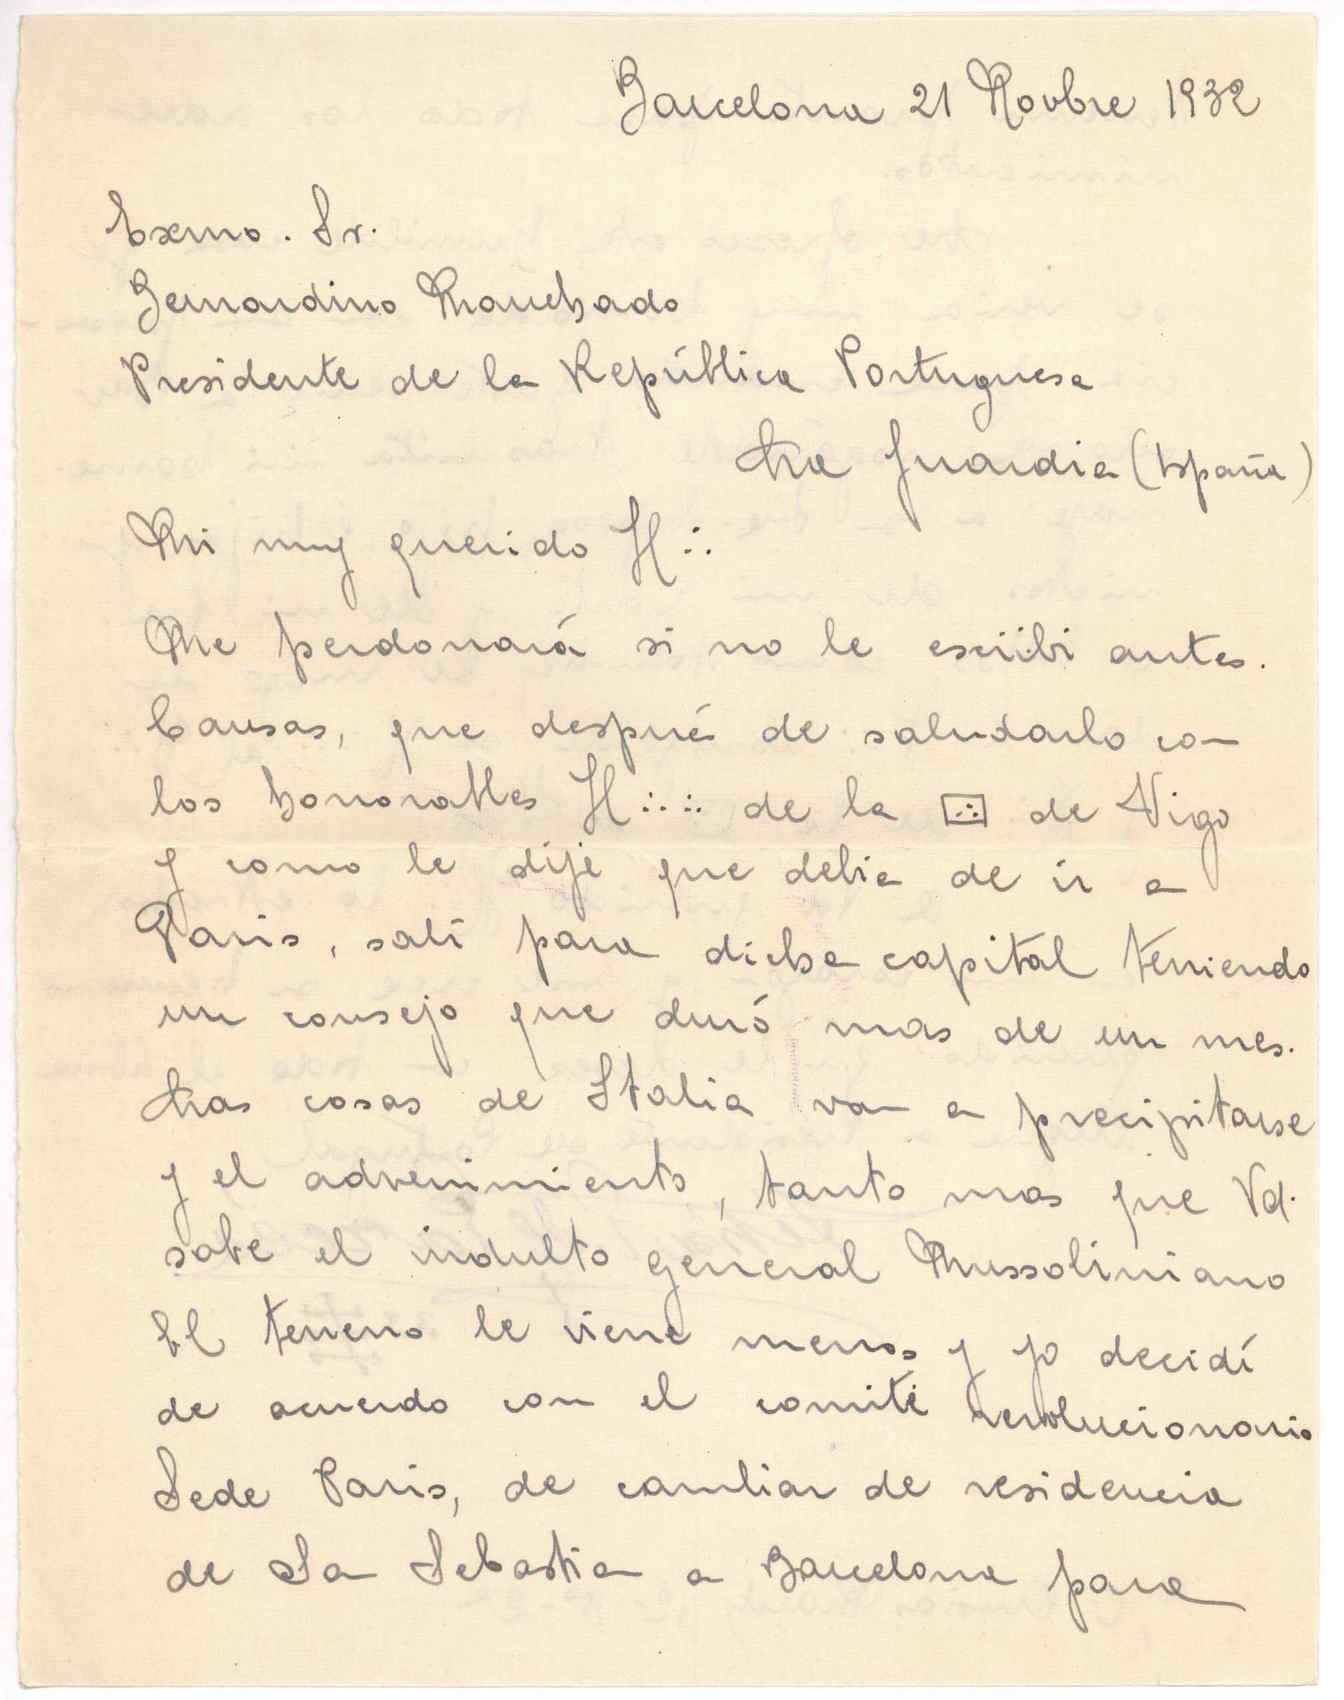 Barcelona 21 Novbre 1932
Exmo. Sr.
Bernardino Manchado
Presidente de la República Portuguesa
La Guardia (España)
Mi muy querido H∴
Me perdonará si no le escribi antes.
Causas, que después de saludarlo con
los honorables H∴∴ de la [∴] de Vigo
y como le dije que debia de ir a
Paris, salí para dicha capital teniendo
un consejo que duró mas de un mes.
Las cosas de Italia van a precipitarse
y el advenimiento, tanto mas que Vd.
sabe el indulto general Mussoliniano
El terreno le viene menos y yo decidí
de acuerdo con el comité revolucionario
Sede Paris, de cambiar de residencia
de San Sebastian a Barcelona para